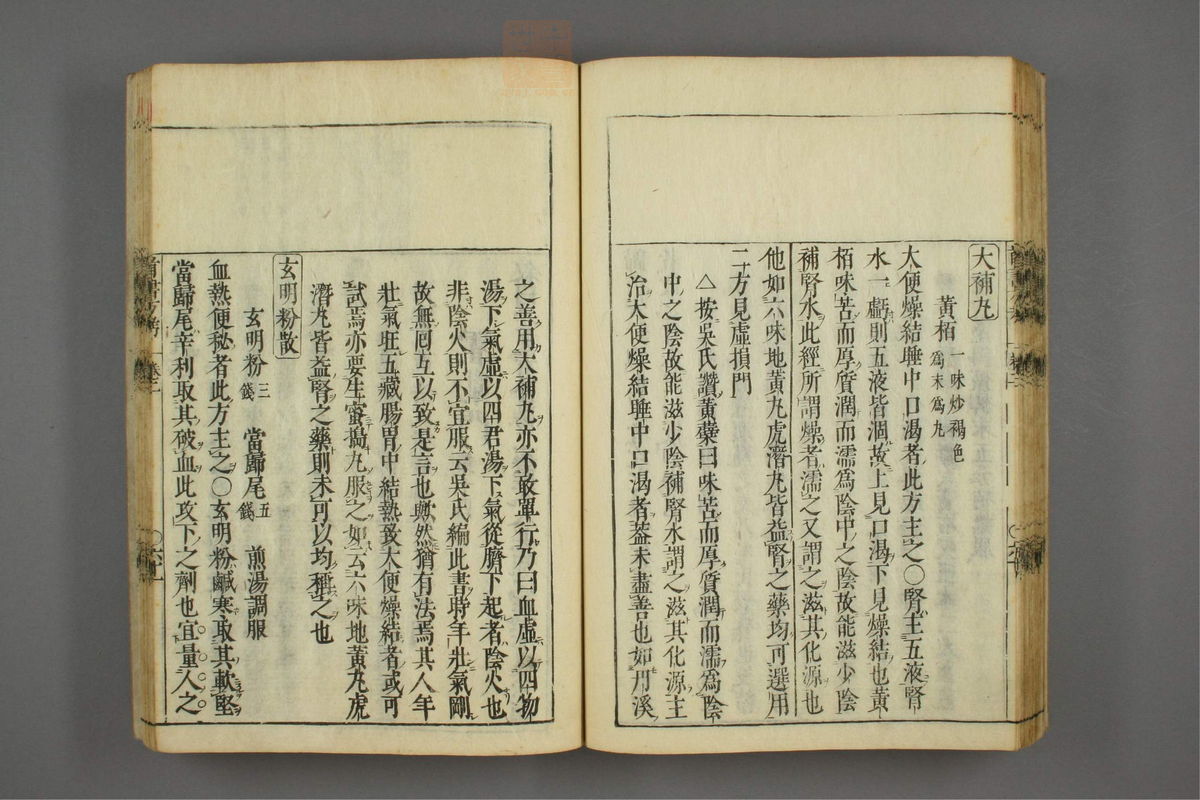 大補丸
黃栢 一味炒褐色
爲末爲丸
大便燥結睡中口渴者此方主之〇腎主五液腎
水一虧則五液皆涸故上見口渴下見燥結也黃
栢味苦而厚質潤而濡爲陰中之陰故能滋少陰
補腎水此經所謂燥者濡之又謂之滋其化源也
他如六味地黃丸虎潛丸皆益腎之藥均可選用
二十方見虛損門
△按吳氏讚黃蘗曰味苦而厚質潤而濡爲陰
中之陰故能滋少陰補腎水謂之滋其化源主
治大便燥結睡中口渴者葢未盡善也如丹溪
之善用大補丸亦不敢單行乃曰血虛以四物
湯下氣虛以四君湯下氣從臍下起者陰火也
非陰火則不宜服云吳氏編此書時年壯氣剛
故無囘互以致是言也歟然猶有法焉其人年
壯氣旺五藏腸胃中結熱致大便燥結者或可
試焉亦要生蜜搗丸服之如云六味地黃丸虎
潛丸皆益腎之藥則未可以均種之也
玄明粉散
玄明粉三錢 當歸尾五錢 煎湯調服
血熱便秘者此方主之〇玄明粉鹹寒取其軟堅
當歸尾辛利取其破血此攻下之劑也宜量人之